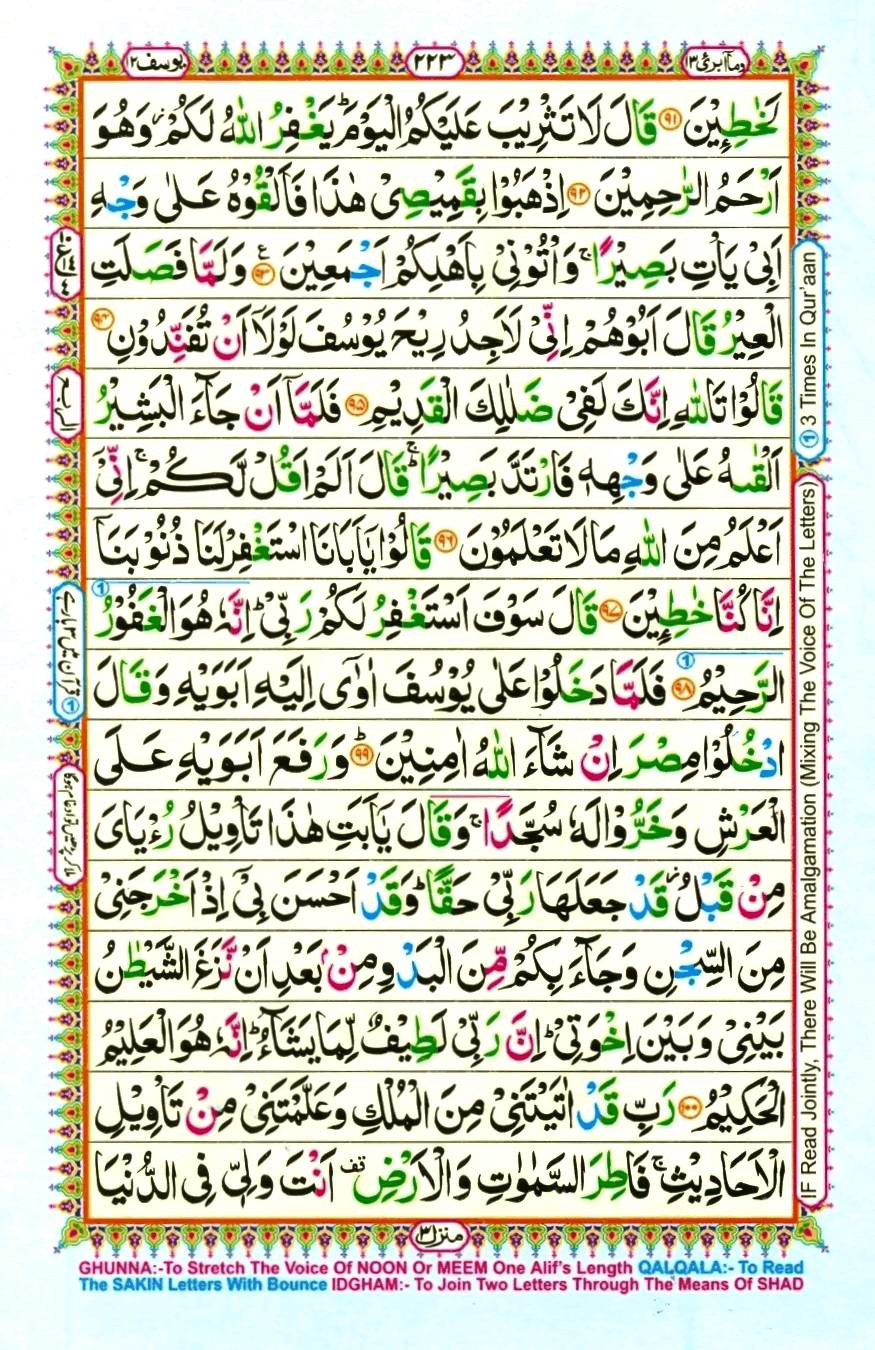 وماابرئ ١٣
٢٢٣
يوسف ١٢
لَخٰطِـِٕيْنَ ﴿٩١﴾ قَالَ لَا تَثْرِيْبَ عَلَيْكُمُ الْيَوْمَ ؕ يَغْفِرُ اللّٰهُ لَكُمْ ؗ وَهُوَ
اَرْحَمُ الرّٰحِمِيْنَ ﴿٩٢﴾ اِذْهَبُوْا بِقَمِيْصِىْ هٰذَا فَاَلْقُوْهُ عَلٰى وَجْهِ
اَبِىْ يَاْتِ بَصِيْرًا ۚ وَاْتُوْنِىْ بِاَهْلِكُمْ اَجْمَعِيْنَ ﴿٩٣﴾ ع وَلَمَّا فَصَلَتِ
الْعِيْرُ قَالَ اَبُوْهُمْ اِنِّىْ لَاَجِدُ رِيْحَ يُوْسُفَ لَوْلَاۤ اَنْ تُفَنِّدُوْنِ ﴿٩٤﴾
قَالُوْا تَاللّٰهِ اِنَّكَ لَفِىْ ضَلٰلِكَ الْقَدِيْمِ ﴿٩٥﴾ فَلَمَّاۤ اَنْ جَآءَ الْبَشِيْرُ
اَلْقٰىهُ عَلٰى وَجْهِهٖ فَارْتَدَّ بَصِيْرًا ۚؕ قَالَ اَلَمْ اَقُلْ لَّكُمْ ۚ اِنِّىْۤ
اَعْلَمُ مِنَ اللّٰهِ مَا لَا تَعْلَمُوْنَ ﴿٩٦﴾ قَالُوْا يٰۤاَبَانَا اسْتَغْفِرْ لَنَا ذُنُوْبَنَاۤ
اِنَّا كُنَّا خٰطِـِٕيْنَ ﴿٩٧﴾ قَالَ سَوْفَ اَسْتَغْفِرُ لَكُمْ رَبِّىْ ؕ اِنَّهٗ هُوَ الْغَفُوْرُ
الرَّحِيْمُ ﴿٩٨﴾ فَلَمَّا دَخَلُوْا عَلٰى يُوْسُفَ اٰوٰٓى اِلَيْهِ اَبَوَيْهِ وَقَالَ
ادْخُلُوْا مِصْرَ اِنْ شَآءَ اللّٰهُ اٰمِنِيْنَ ؕ﴿٩٩﴾ وَرَفَعَ اَبَوَيْهِ عَلَى
الْعَرْشِ وَخَرُّوْا لَهٗ سُجَّدًا ۚ وَقَالَ يٰۤاَبَتِ هٰذَا تَاْوِيْلُ رُءْيَاىَ
مِنْ قَبْلُ ؗ قَدْ جَعَلَهَا رَبِّىْ حَقًّا ؕ وَقَدْ اَحْسَنَ بِىْۤ اِذْ اَخْرَجَنِىْ
مِنَ السِّجْنِ وَجَآءَ بِكُمْ مِّنَ الْبَدْوِ مِنْۢ بَعْدِ اَنْ نَّزَغَ الشَّيْطٰنُ
بَيْنِىْ وَبَيْنَ اِخْوَتِىْ ؕ اِنَّ رَبِّىْ لَطِيْفٌ لِّمَا يَشَآءُ ؕ اِنَّهٗ هُوَ الْعَلِيْمُ
الْحَكِيْمُ ﴿١٠٠﴾ رَبِّ قَدْ اٰتَيْتَنِىْ مِنَ الْمُلْكِ وَعَلَّمْتَنِىْ مِنْ تَاْوِيْلِ
الْاَحَادِيْثِ ۚ فَاطِرَ السَّمٰوٰتِ وَالْاَرْضِ قف اَنْتَ وَلِىّٖ فِى الدُّنْيَا
① 3 Times In Qur'aan
IF Read Jointly, There Will Be Amalgamation (Mixing The Voice Of The Letters)
الربع
① قرآن میں ۳ بارے
منزل ٣
GHUNNA:-To Stretch The Voice Of NOON Or MEEM One Alif's Length QALQALA:- To Read
The SAKIN Letters With Bounce IDGHAM:- To Join Two Letters Through The Means Of SHAD